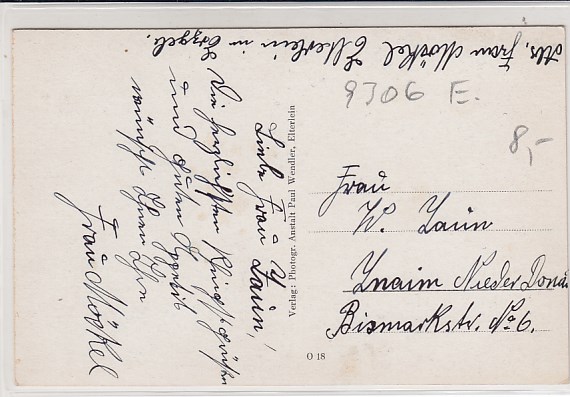 Abs. Frau Möckel Elterlein im Erzgeb.
9306 E.
8,-
Liebe Frau Zaun!
Die herzlichsten
und guten
wünscht Ihnen Ihre
Frau Möckel
Verlag: Photogr. Anstalt Paul Wendler, Elterlein
Frau
W. Zaun
Znaim Nieder Donau
Bismarckstr. No 6.
O 18